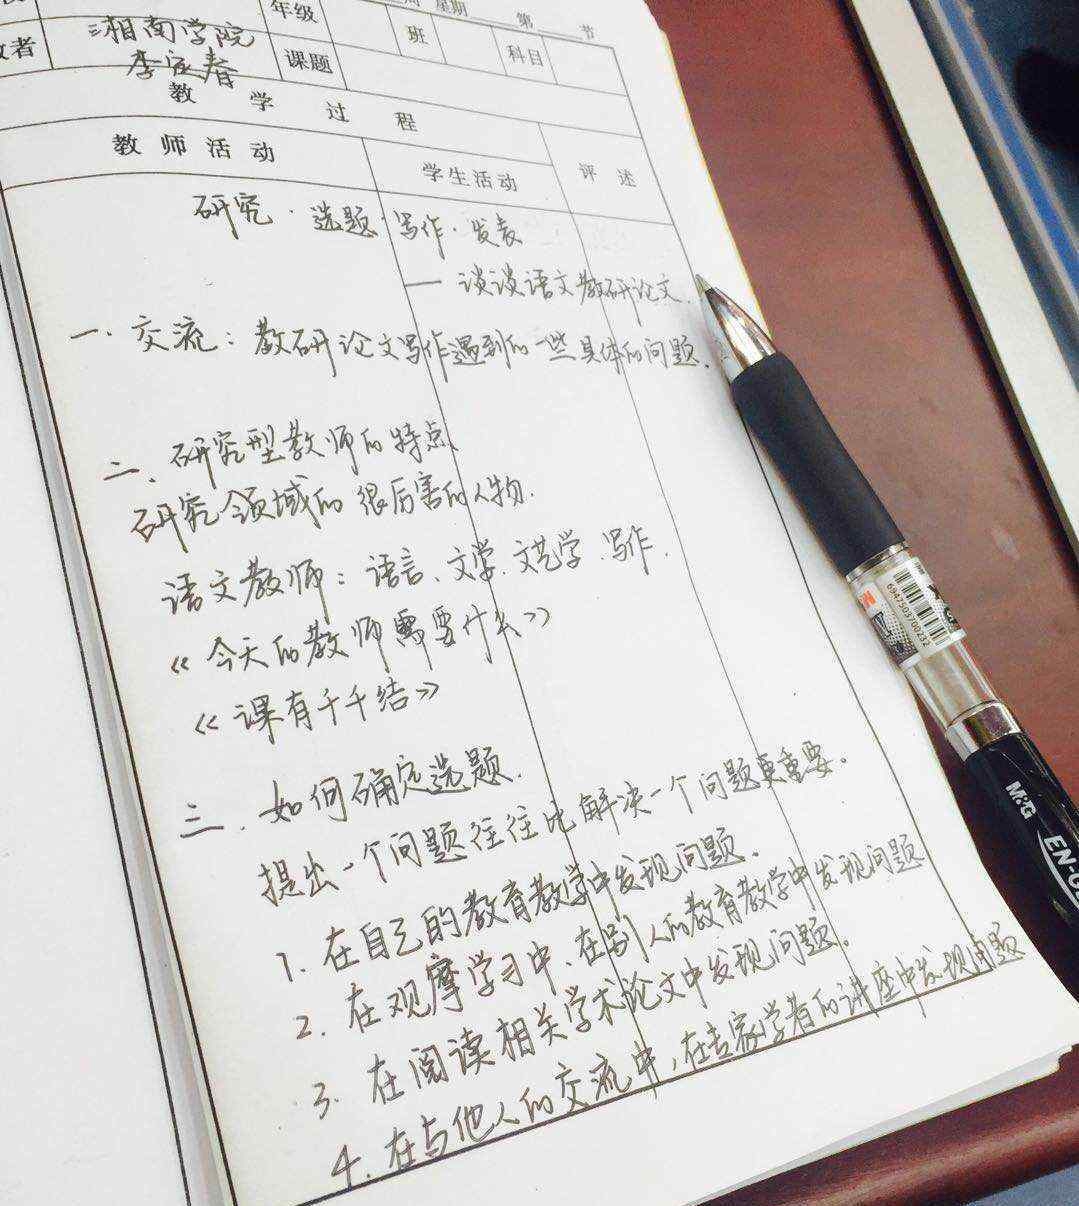 年级 班 星期 第 节
科目
者 湘南学院 课题
李 春
教学过程
教师活动 学生活动 评述
研究·选题·写作·发表
— 谈谈语文教研论文.
一. 交流: 教研论文写作遇到的一些具体的问题.
二、研究型教师的特点
研究领域的 很厉害的人物.
语文教师: 语言、文学、文艺学、写作.
《今天的教师需要什么》
《课有千千结》
三. 如何确定选题.
提出一个问题往往比解决一个问题更重要。
1. 在自己的教育教学中发现问题。
2. 在观摩学习中、在别人的教育教学中发现问题
3. 在阅读相关学术论文中发现问题。
4. 在与他人的交流中,在专家学者的讲座中发现问题
6947503709232
M&G
EN-